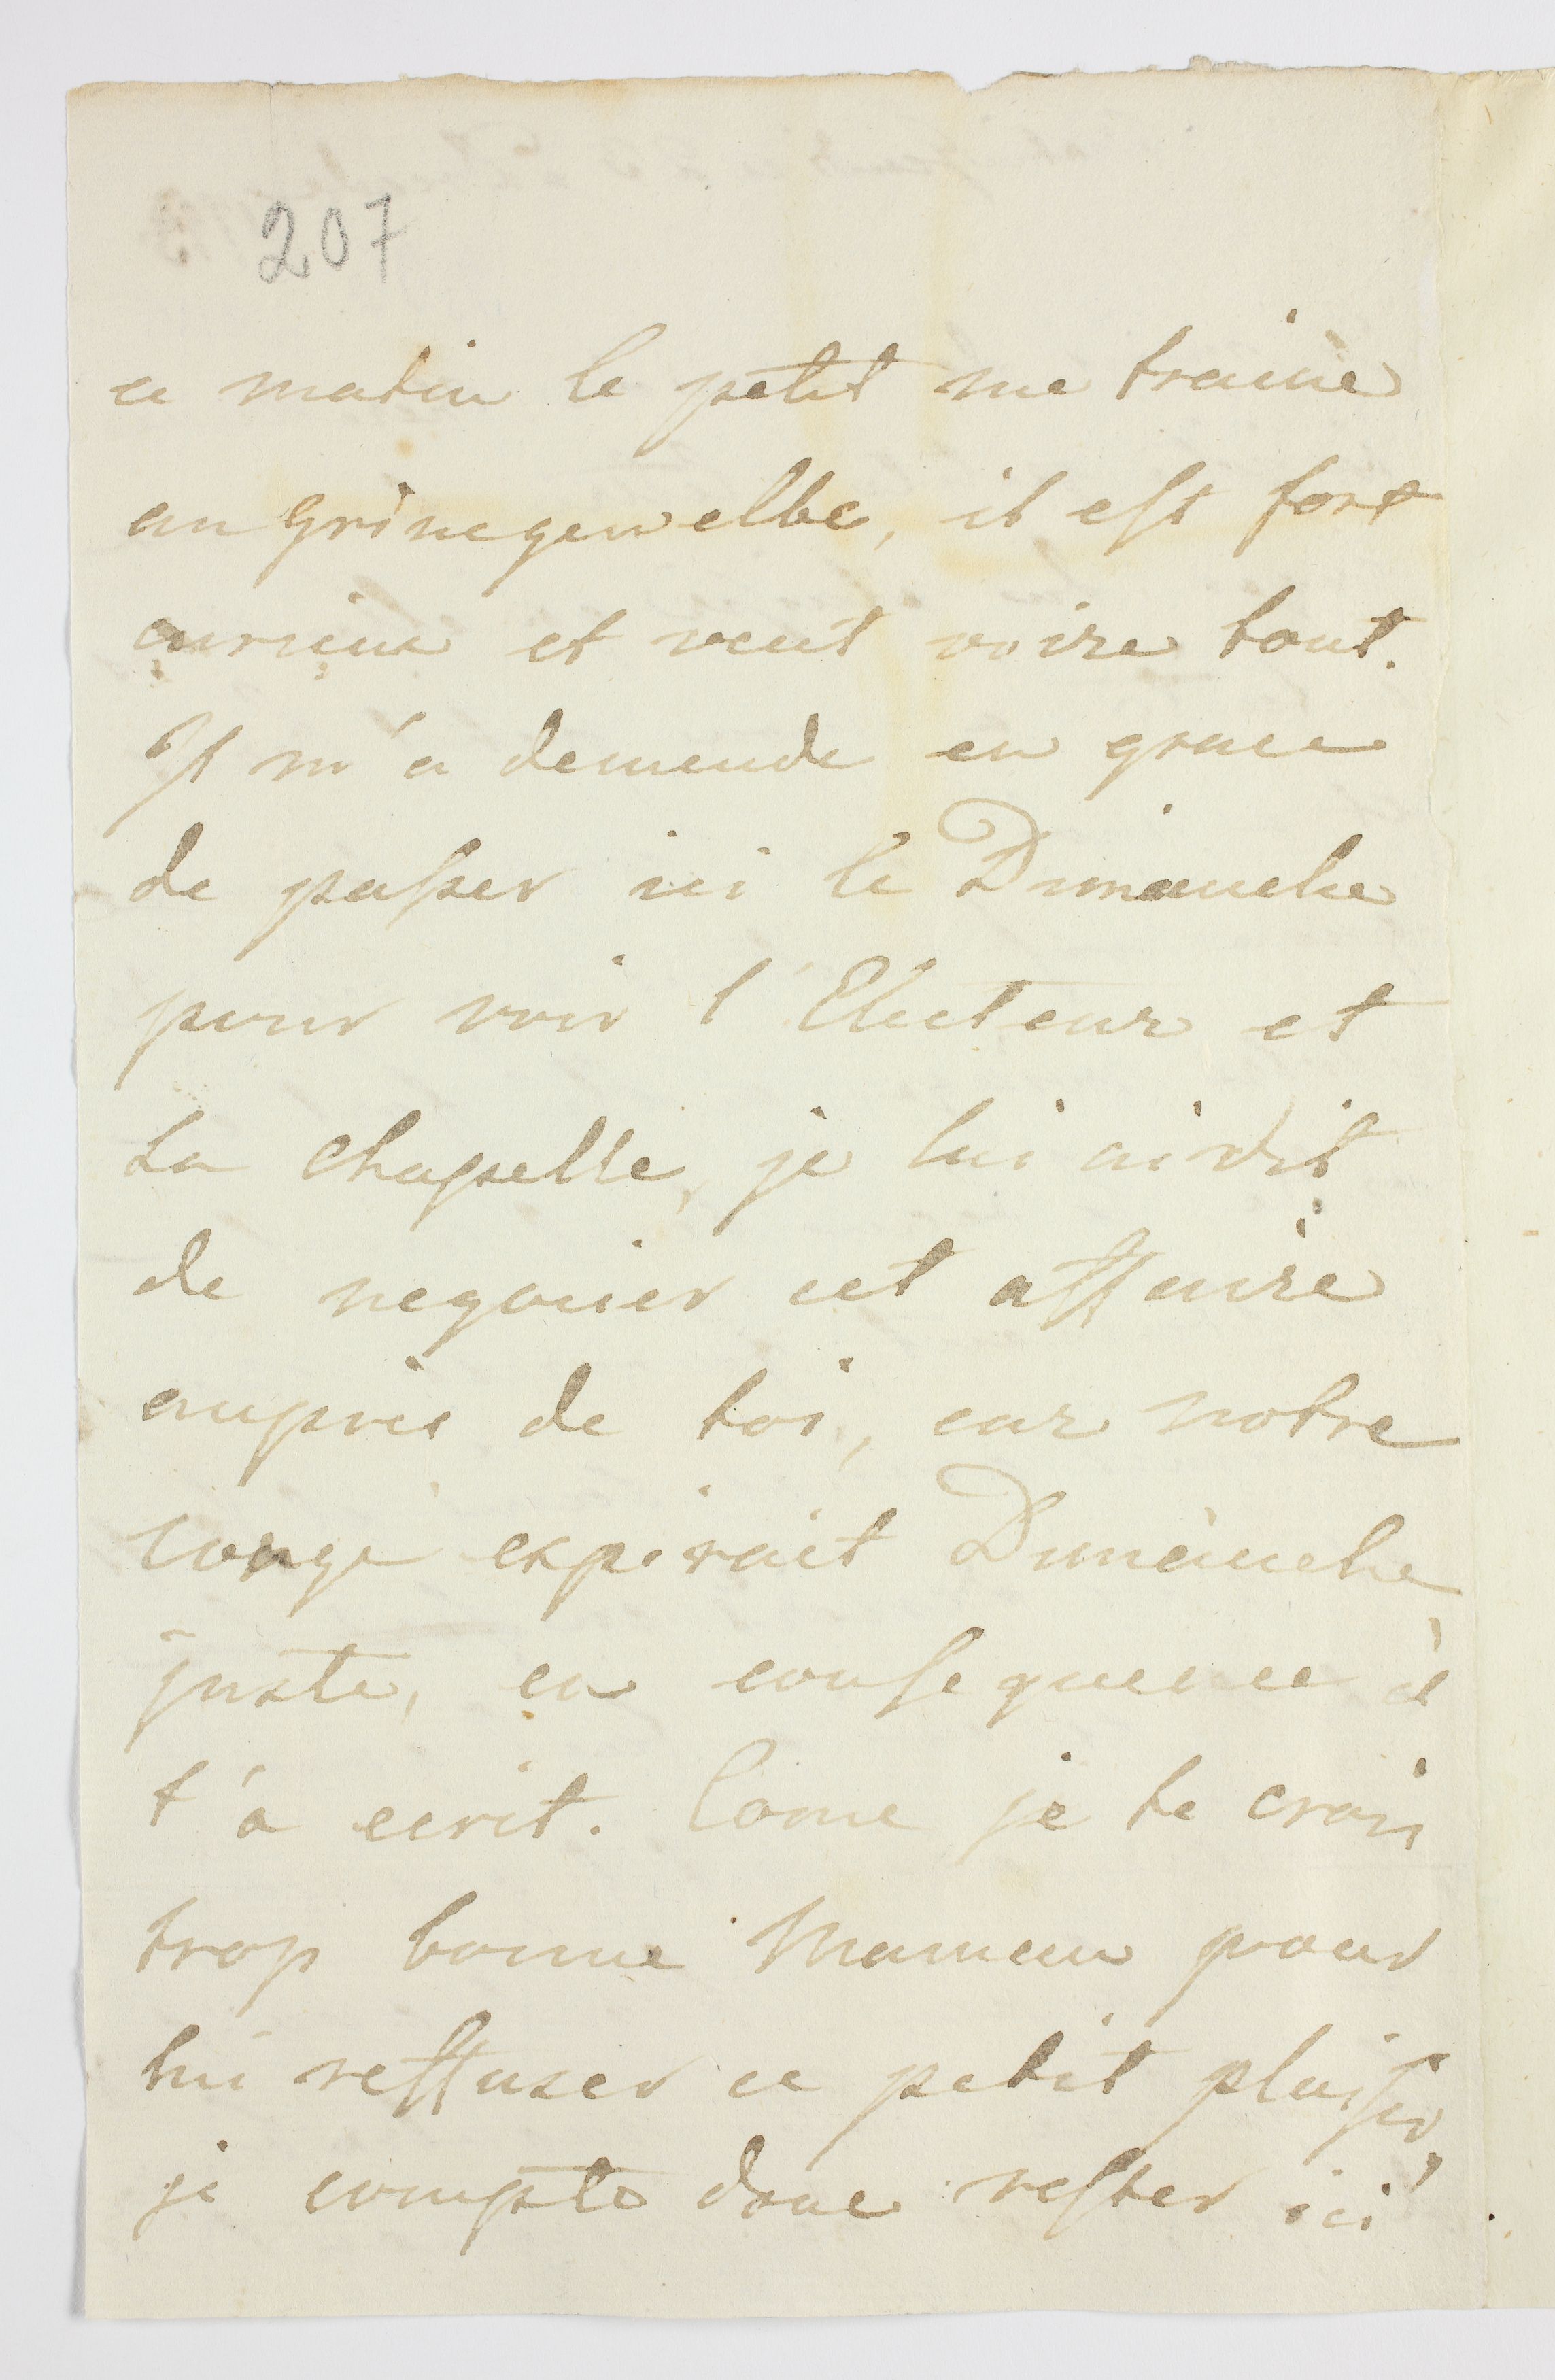 207
ce matin le petit me traine
au Grinegewelbe, il est fort
curieux et veut voire tout.
Il m'a demende en grace
de passer ici le Dimanche
pour voir l'Electeur et
La Chapelle, je lui ai dit
de negocier cet affaire
aupres de toi, car notre
conge expirait Dimanche
juste, en consequence il
t'a ecrit. Come je te crois
trop bonne Maman pour
lui reffuser ce petit plaisir
je compte donc rester ici